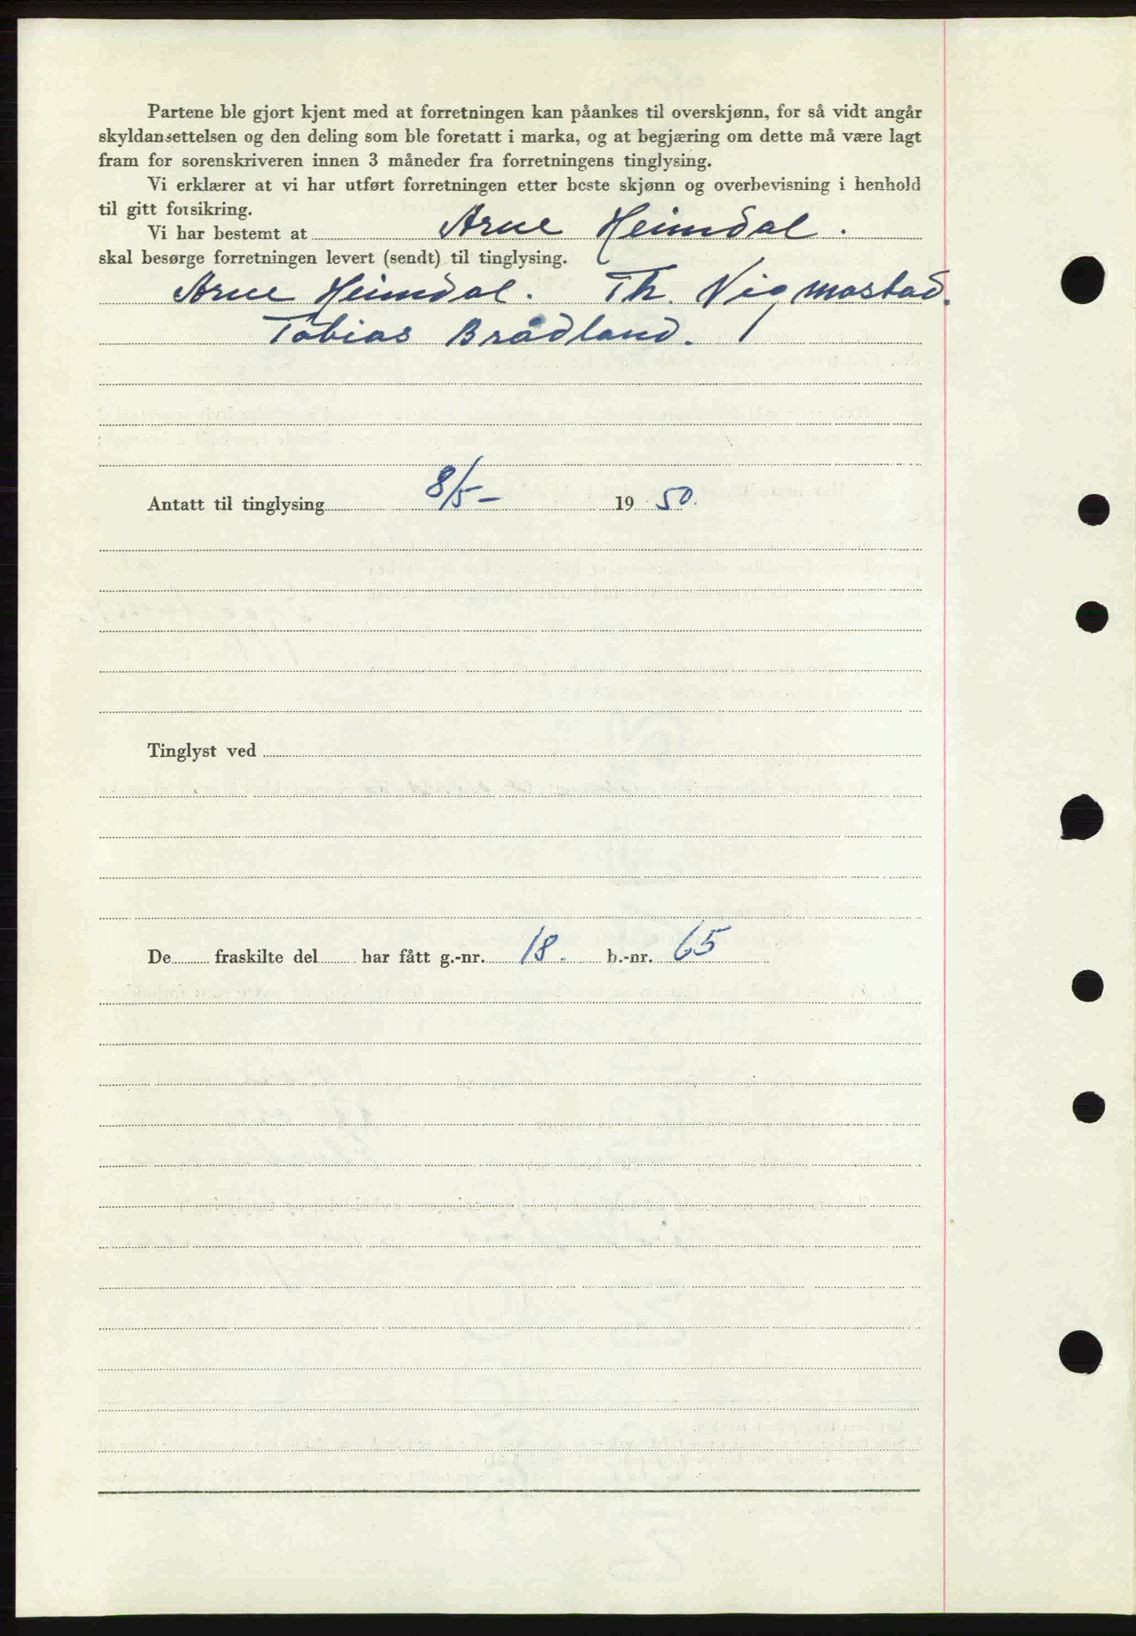 Partene ble gjort kjent med at forretningen kan påankes til overskjønn, for så vidt angår
skyldansettelsen og den deling som ble foretatt i marka, og at begjæring om dette må være lagt
fram for sorenskriveren innen 3 måneder fra forretningens tinglysing.
Vi erklærer at vi har utført forretningen etter beste skjønn og overbevisning i henhold
til gitt forsikring.
Vi har bestemt at Arne Heimdal.
skal besørge forretningen levert (sendt) til tinglysing.
Arne Heimdal. Th. Vigmostad.
Tobias Brådland.
Antatt til tinglysing 8/5- 1950.
Tinglyst ved
De fraskilte del har fått g.-nr. 18. b.-nr. 65